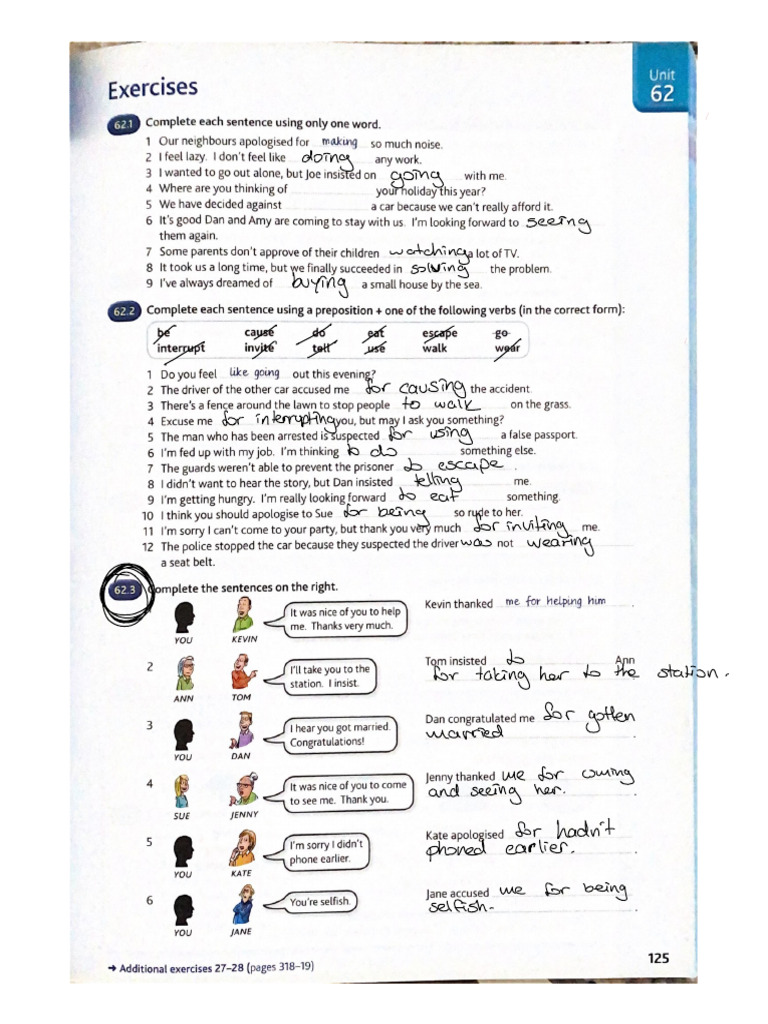 Exercises
Unit
62
62.1 Complete each sentence using only one word.
1 Our neighbours apologised for making so much noise.
2 I feel lazy. I don't feel like doing any work.
3 I wanted to go out alone, but Joe insisted on going with me.
4 Where are you thinking of your holiday this year?
5 We have decided against a car because we can't really afford it.
6 It's good Dan and Amy are coming to stay with us. I'm looking forward to seeing
them again.
7 Some parents don't approve of their children watching a lot of TV.
8 It took us a long time, but we finally succeeded in solving the problem.
9 I've always dreamed of buying a small house by the sea.
62.2 Complete each sentence using a preposition + one of the following verbs (in the correct form):
be cause do eat escape go
interrupt invite tell use walk wear
1 Do you feel like going out this evening?
2 The driver of the other car accused me for causing the accident.
3 There's a fence around the lawn to stop people to walk on the grass.
4 Excuse me for interrupting you, but may I ask you something?
5 The man who has been arrested is suspected for using a false passport.
6 I'm fed up with my job. I'm thinking to do something else.
7 The guards weren't able to prevent the prisoner to escape.
8 I didn't want to hear the story, but Dan insisted telling me.
9 I'm getting hungry. I'm really looking forward to eat something.
10 I think you should apologise to Sue for being so rude to her.
11 I'm sorry I can't come to your party, but thank you very much for inviting me.
12 The police stopped the car because they suspected the driver was not wearing
a seat belt.
62.3 Complete the sentences on the right.
It was nice of you to help
me. Thanks very much.
YOU KEVIN
Kevin thanked me for helping him .
2
I'll take you to the
station. I insist.
ANN TOM
Tom insisted to Ann
for taking her to the station.
3
I hear you got married.
Congratulations!
YOU DAN
Dan congratulated me for gotten
married
4
It was nice of you to come
to see me. Thank you.
SUE JENNY
Jenny thanked me for coming
and seeing her.
5
I'm sorry I didn't
phone earlier.
YOU KATE
Kate apologised for hadn't
phoned earlier.
6
You're selfish.
YOU JANE
Jane accused me for being
selfish.
→ Additional exercises 27–28 (pages 318–19)
125